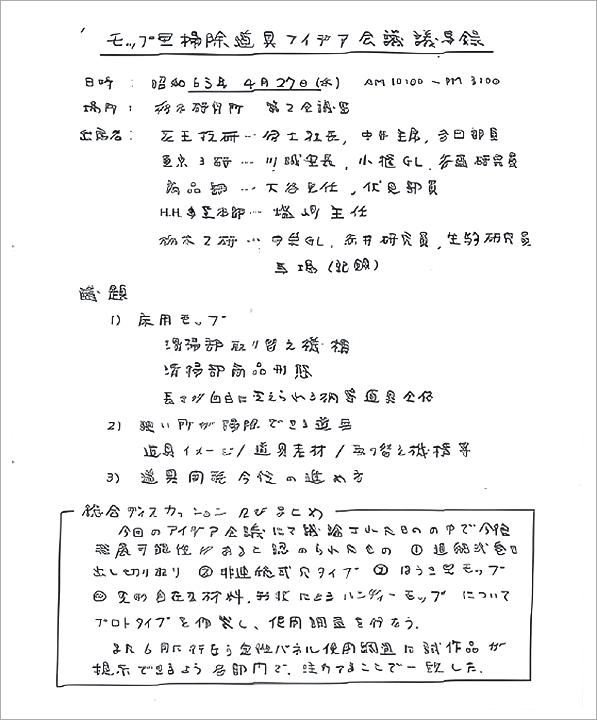 モップ型掃除道具アイデア会議議事録
日時： 昭和63年 4月27日(水) AM 10:00 ~ PM 3:00
場所： 栃木研究所 第2会議室
出席者： 花王技研… 社長, 中井主席, 部員
東京3研… 川城室長, 小檜GL, 研究員
商品部… 大谷主任, 伏見部員
H.H.事業本部… 主任
栃木2研… GL, 赤井研究員, 生駒研究員
馬場 (記録)
議題
1) 床用モップ
清掃部取り替え機構
清掃部商品形態
長さが自由に変えられる柄等道具全体
2) 狭い所が掃除できる道具
道具イメージ/道具素材/取り替え機構等
3) 道具開発今後の進め方
総合ディスカッション及びまとめ
今回のアイデア会議にて議論されたものの中で今後
発展可能性があると認められたもの ① 連続式巻き
出し切り取り ② 非連続式穴タイプ ③ ほうき型モップ
④ 変形自在な材料,形状によるハンディーモップ について
プロトタイプを作製し、使用調査を行なう.
また6月に行なう 急性パネル使用調査に試作品が
提示できるよう 各部門で、注力することで一致した.